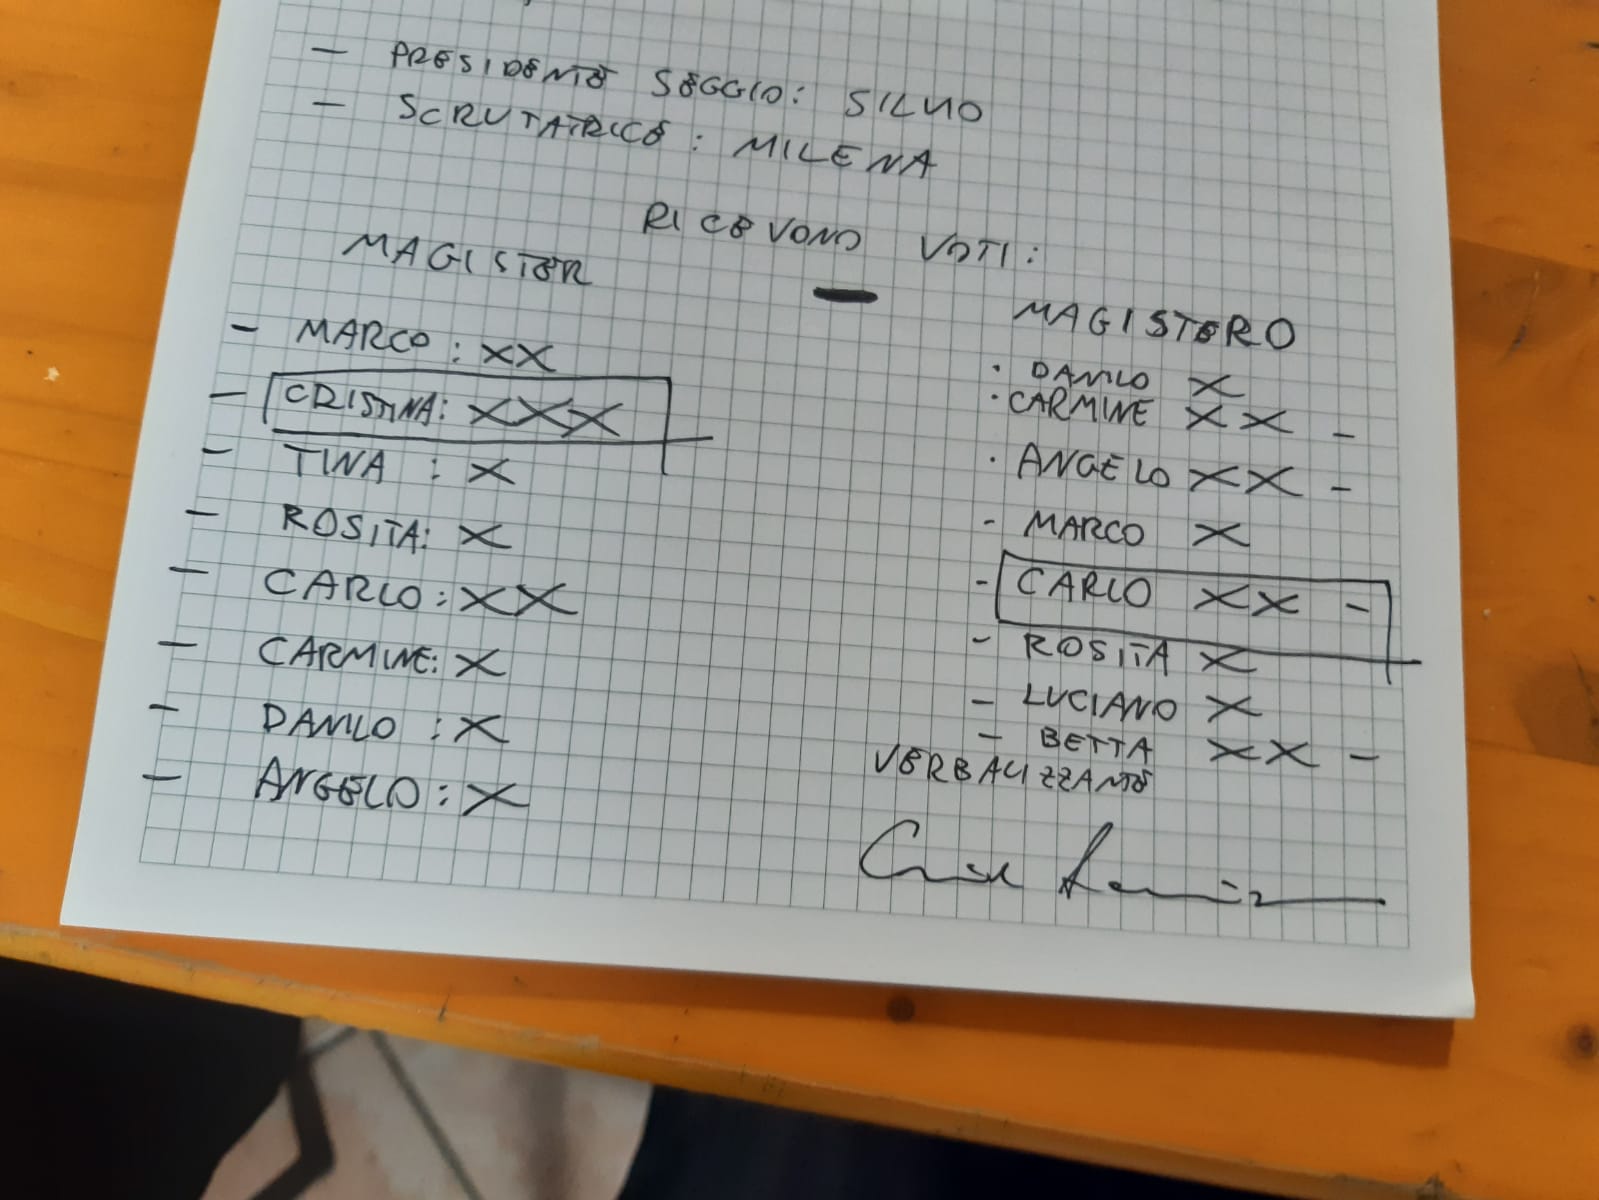 - PRESIDENTE SEGGIO: SILVIO
- SCRUTATRICE: MILENA
RICEVONO VOTI:
MAGISTER
- MARCO: XX
- CRISTINA: XXX
- TINA : X
- ROSITA: X
- CARLO: XX
- CARMINE: X
- DANILO : X
- ANGELO: X
MAGISTERO
· DANILO X
· CARMINE XX -
· ANGELO XX -
- MARCO X
- CARLO XX -
- ROSITA X
- LUCIANO X
- BETTA XX -
VERBALIZZANTE